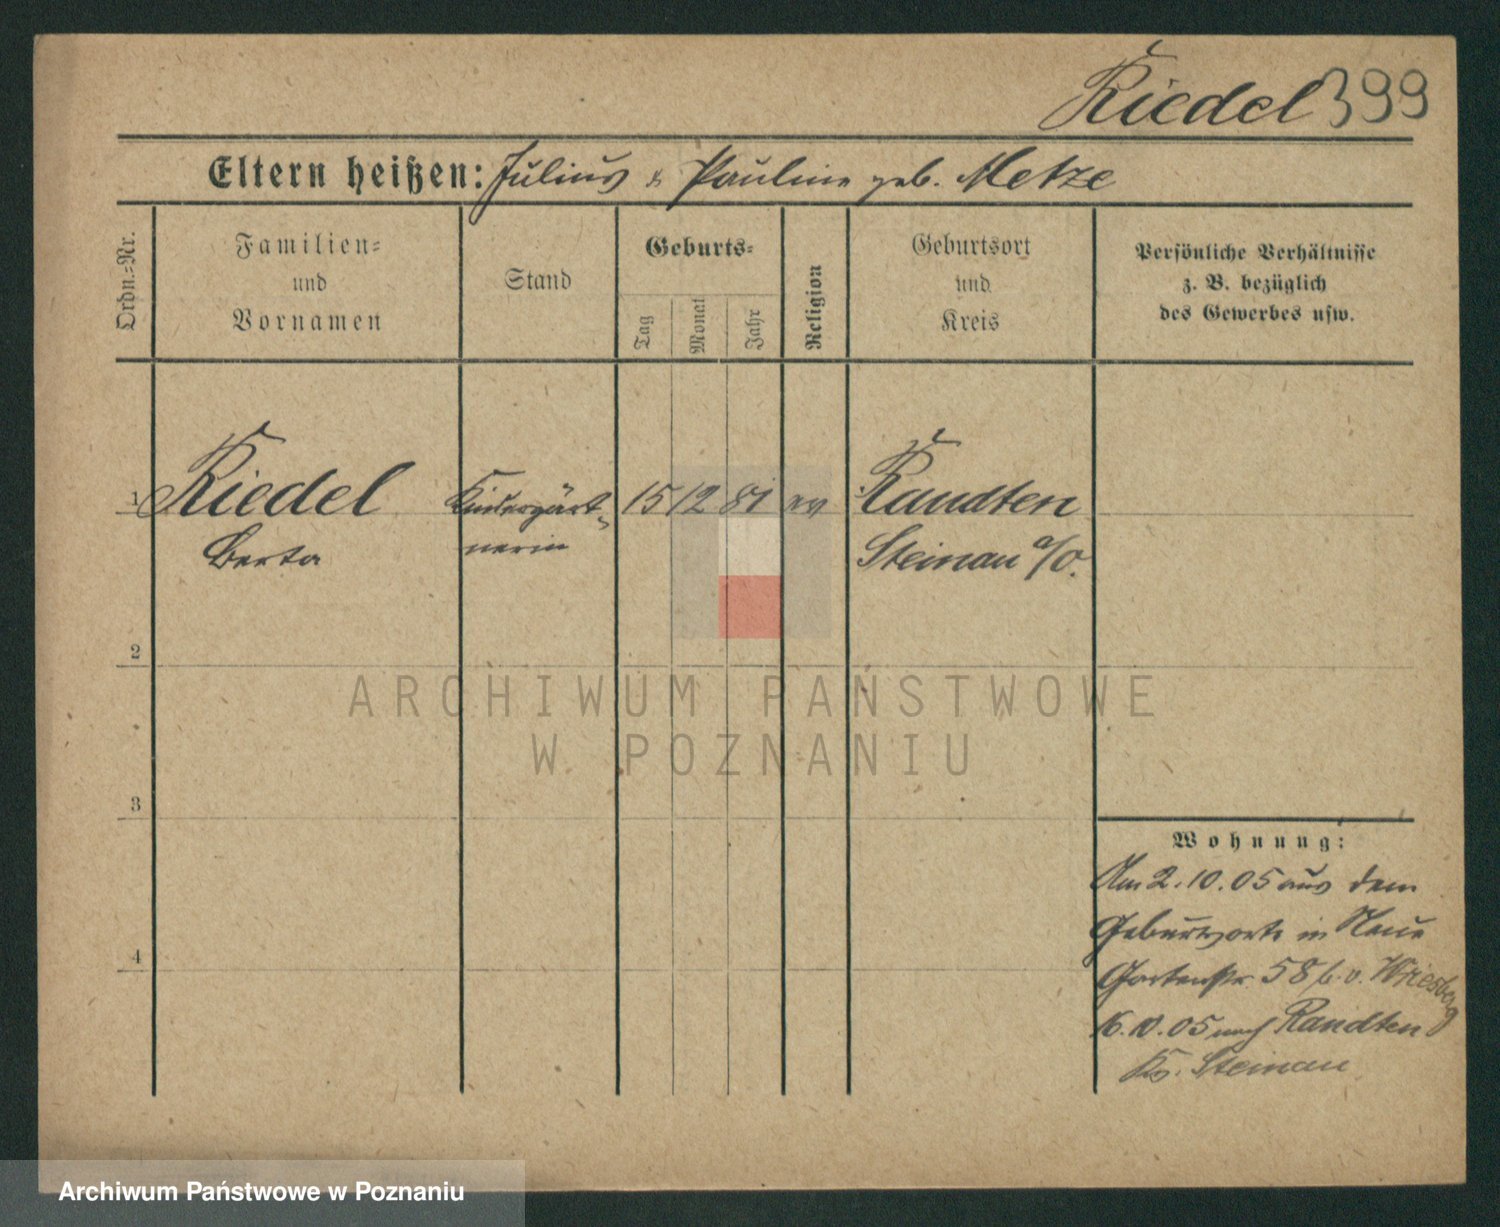 Riedel 399
Eltern heißen: Julius & Pauline geb. Metze
Ordn.=Nr.
Familien=
und
Vornamen
Stand
Geburts=
Tag
Monat
Jahr
Religion
Geburtsort
und
Kreis
Persönliche Verhältnisse
z. B. bezüglich
des Gewerbes usw.
1 Riedel Kindergärt= 15 12 81 ev Raudten
Berta nerin Steinau a/O.
2
3
4
Wohnung:
Am 2.10.05 aus dem
Geburtsorte in Neue
Gartenstr 58 b. v. Wriesberg
16.10.05 nach Raudten
Krs. Steinau
ARCHIWUM PAŃSTWOWE
W POZNANIU
Archiwum Państwowe w Poznaniu